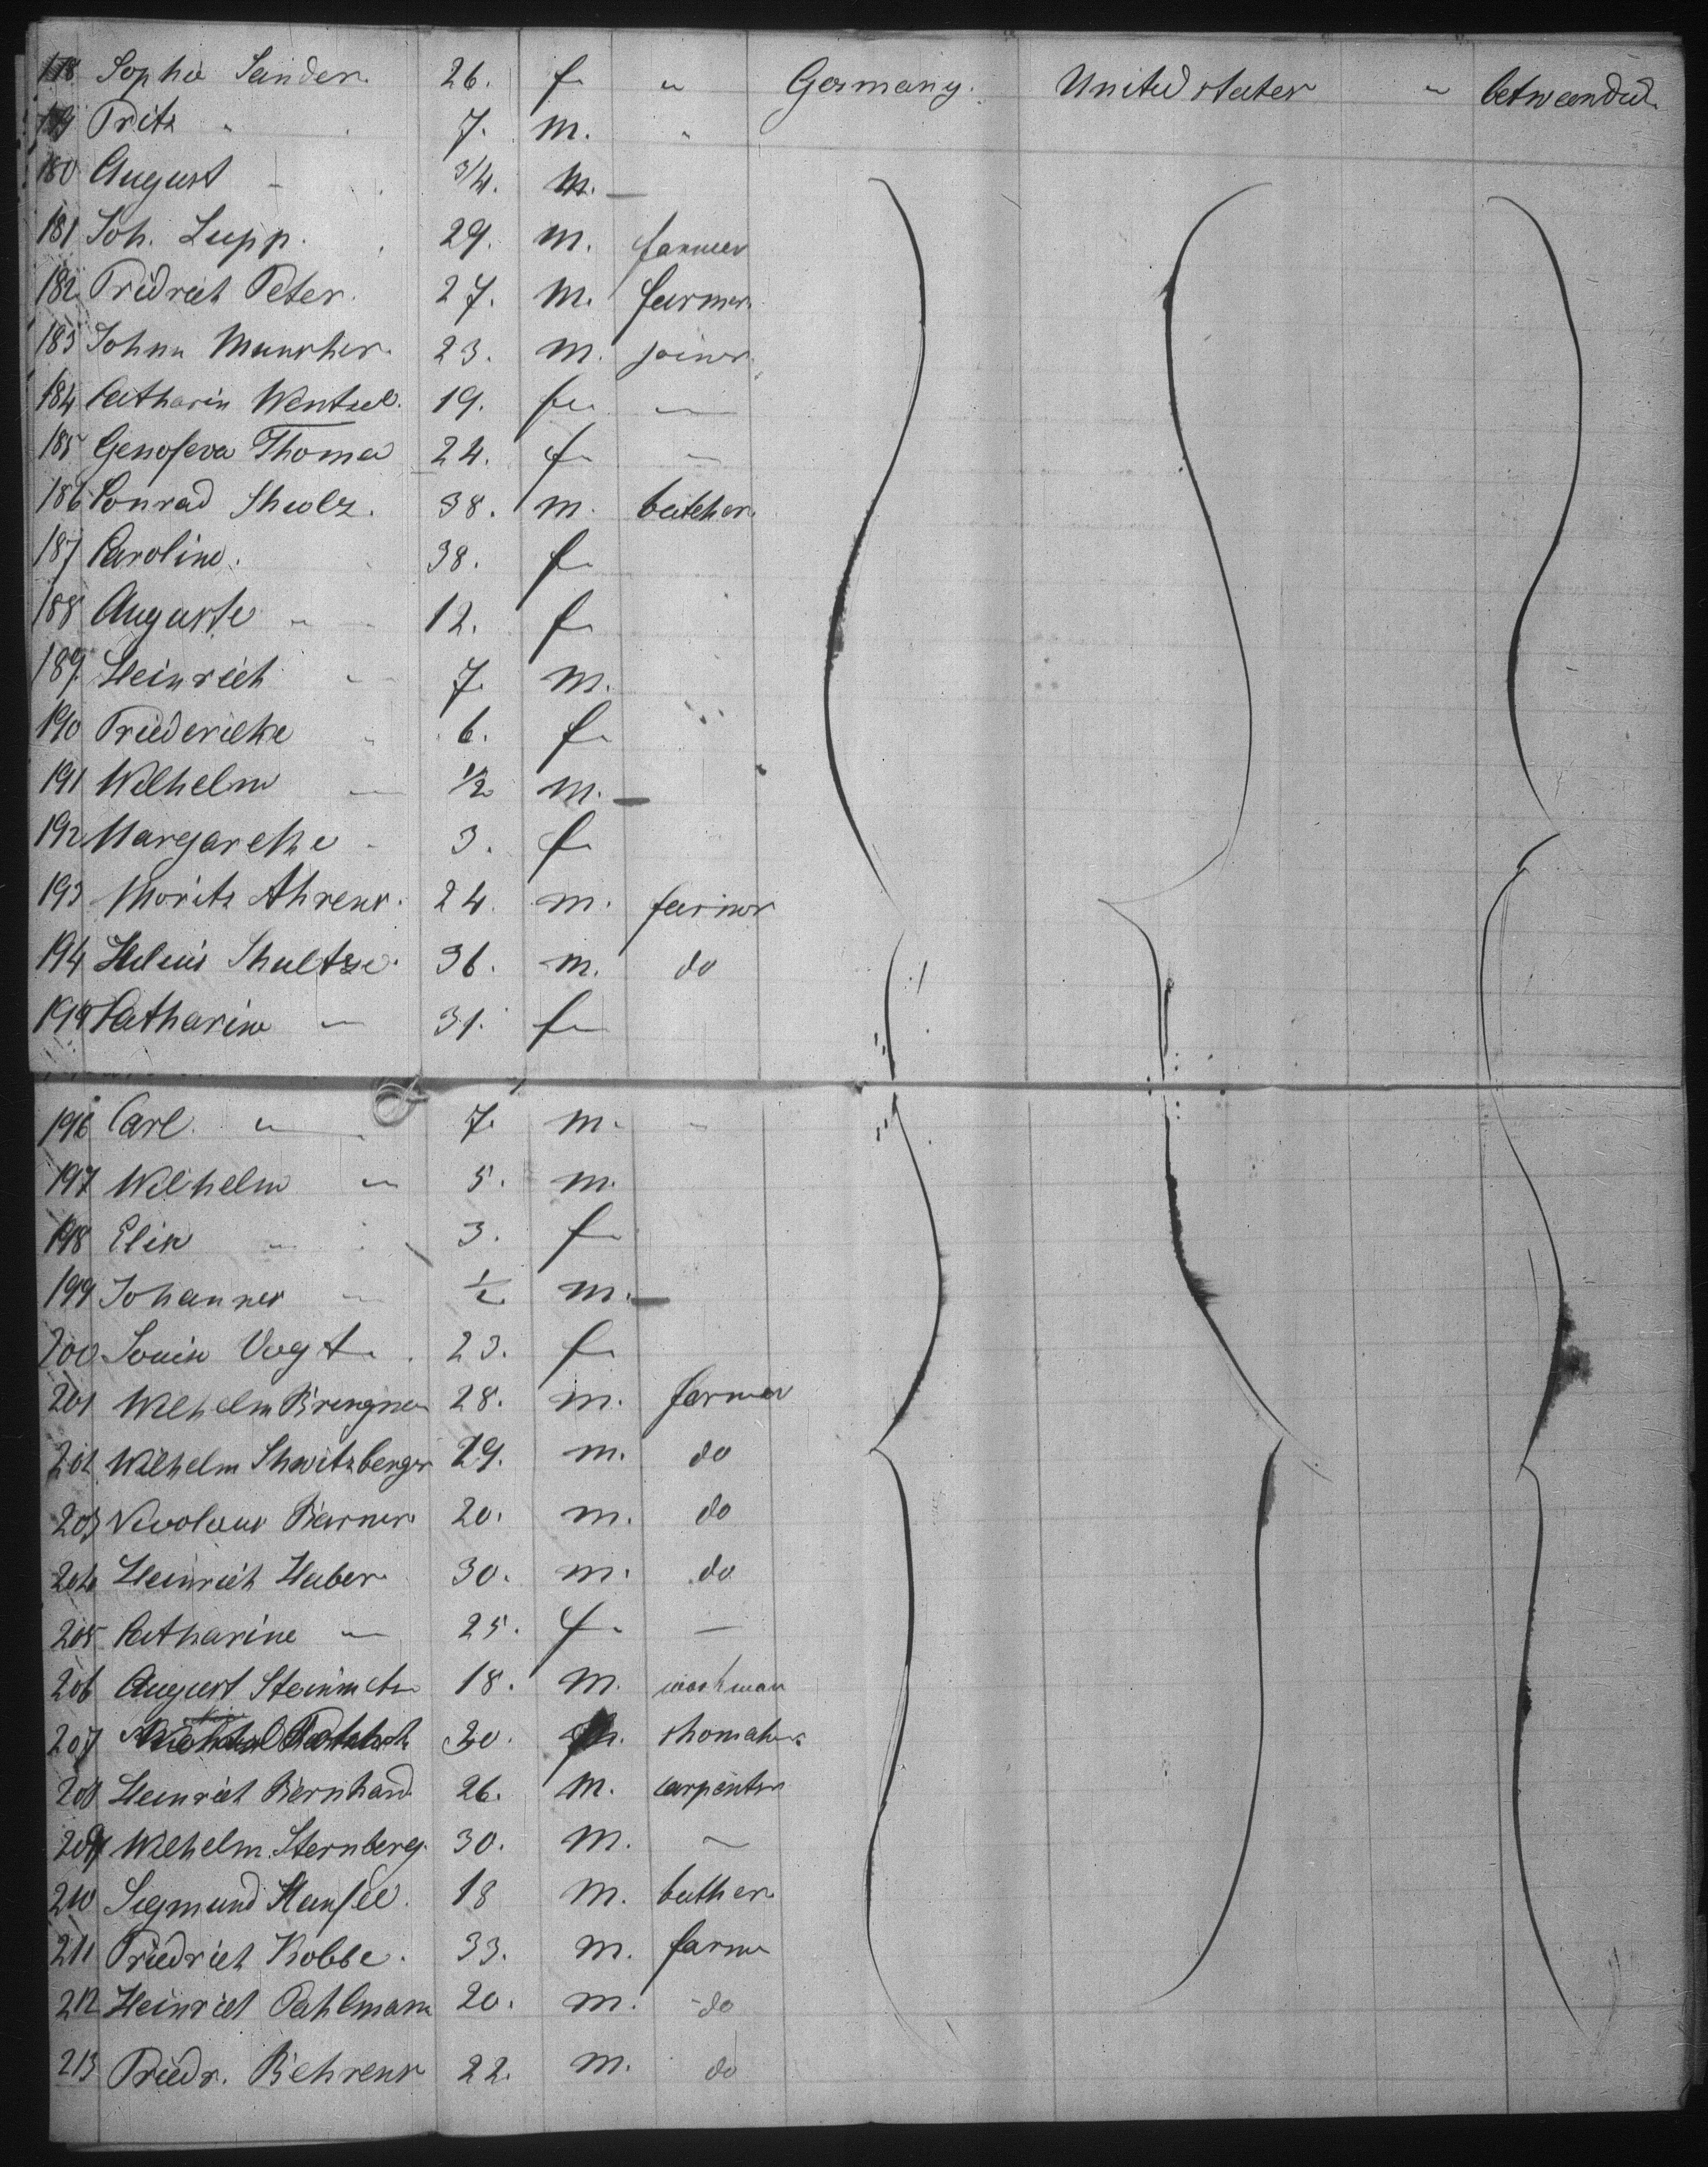 178 Sophie Sander. 26. f. " Germany. United states " betweendeck
179 Fritz " 7. m. "
180 August " 3/4. m. —
181 Joh. Lupp. 29. m. farmer
182 Fridrich Peter. 27. m. farmer.
183 Johnn Muncher. 23. m. joiner.
184 Catharin Wentzel. 19. f. —
185 Genofeva Thoma 24. f. —
186 Conrad Shulz. 38. m. butcher.
187 Caroline. 38. f.
188 Auguste " 12. f.
189 Heinrich " 7. m.
190 Friederike " 6. f.
191 Wilhelm " 1/2 m. —
192 Margarethe " 3. f.
193 Moritz Ahrens. 24. m. farmer
194 Shultze. 36. m. do
195 Catharine " 31. f.
196 Carl " 7. m. "
197 Wilhelm " 5. m.
198 Elise " 3. f.
199 Johannes " 1/2 m. —
200 Louise Vogt. 23. f.
201 Wilhelm 28. m. farmer
202 Wilhelm Shwitzberger 29. m. do
203 Barner 20. m. do
204 Heinrich Huber. 30. m. do
205 Catharine " 25. f. —
206 August Steinmetz 18. m. workman
207 20. m. shomaker
208 Heinrich Bernhard 26. m. carpenter
209 Wilhelm Sternberg. 30. m. ~
210 Siegmund 18 m. buther
211 Friedrich Kobbe. 33. m. farmer
212 Heinrich Pahlmann 20. m. do
213 Friedr. Behrens 22. m. do